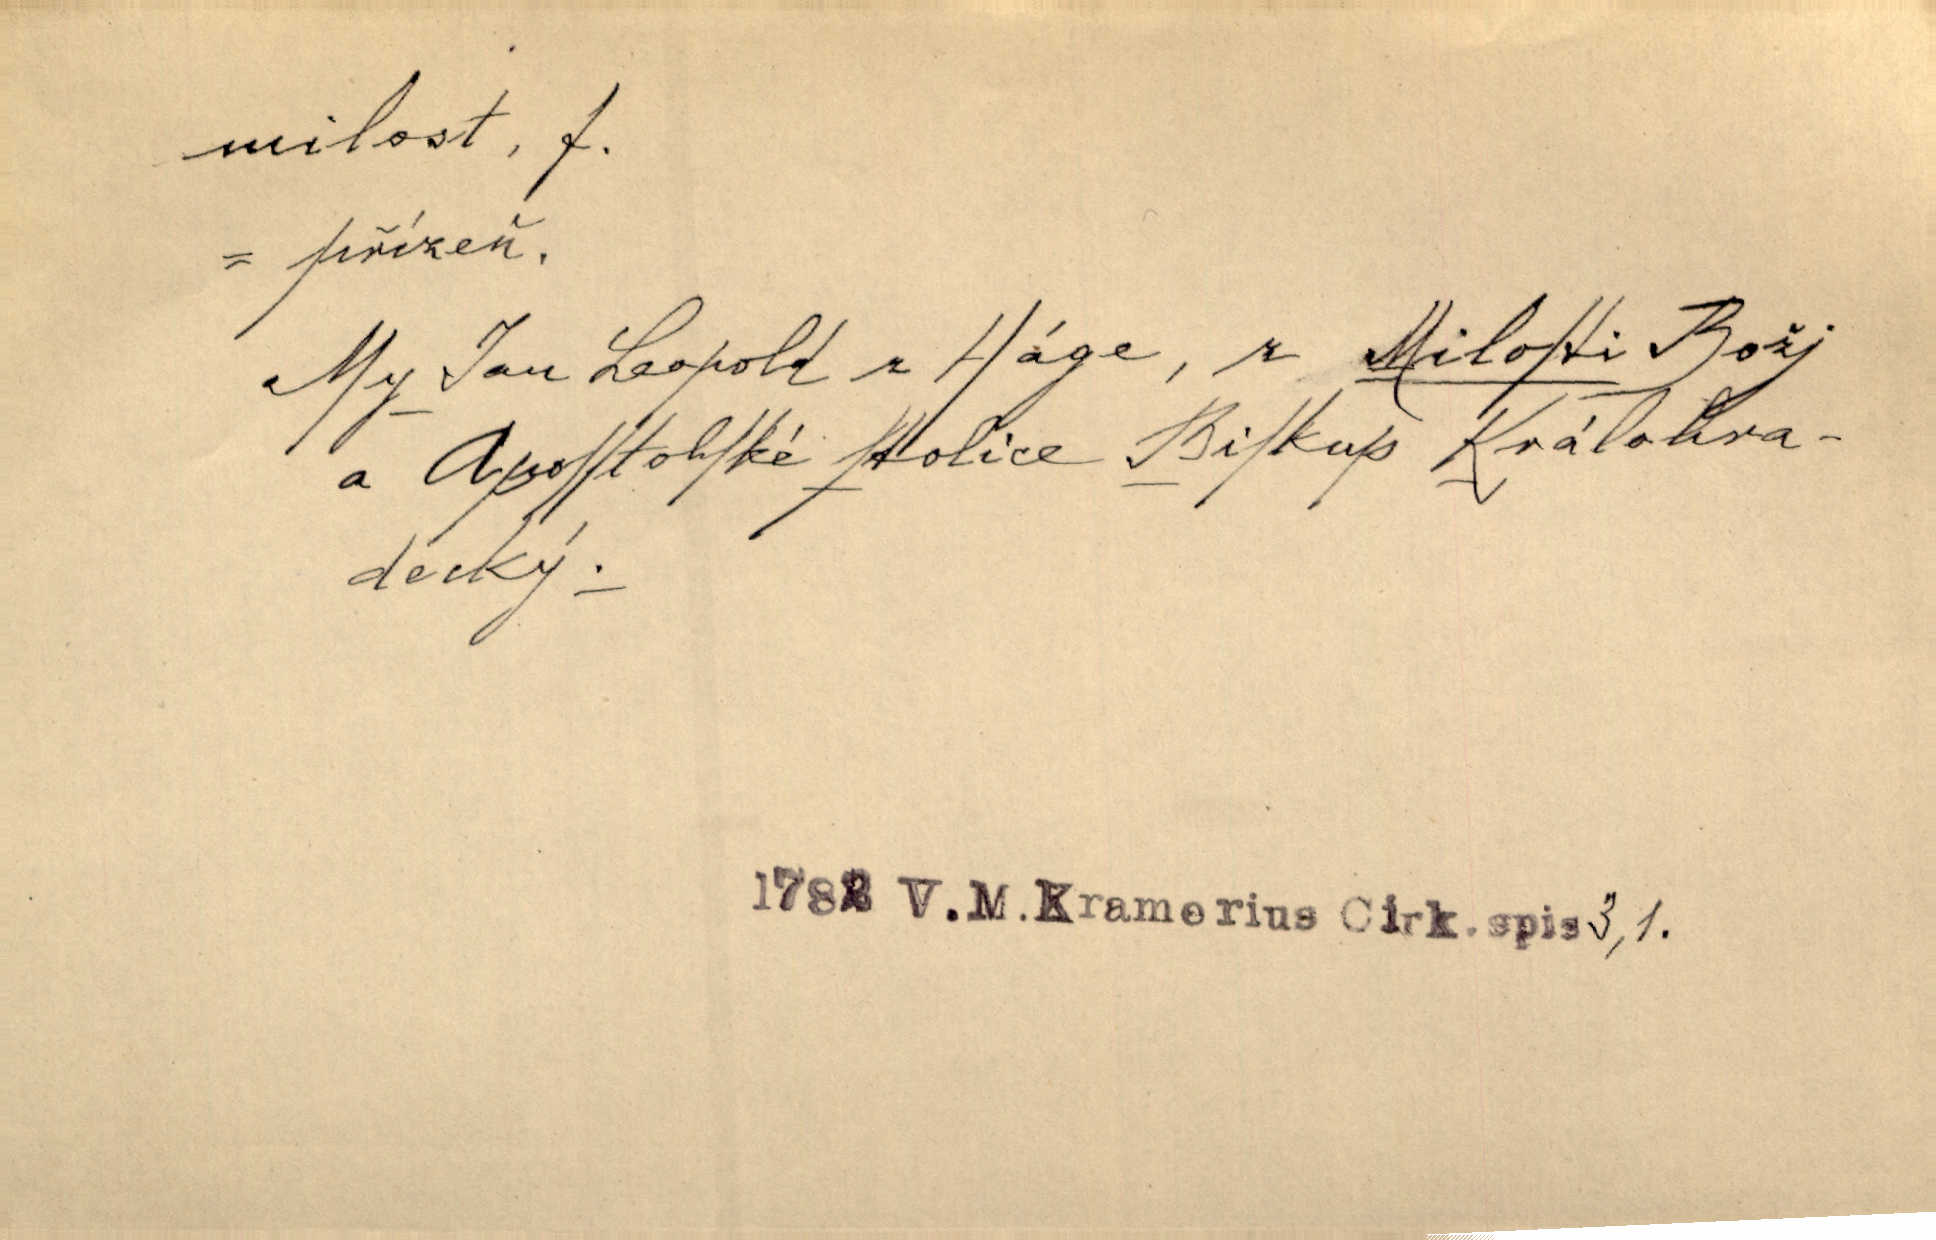 milost, f.
= přízeň.
My Jan Leopold z Háge, z Miloſti Božj
a Apoſſtolſké ſtolice Biſkup Králohra-
decký.
1782 V.M.Kramerius Cirk.spis 3,1.